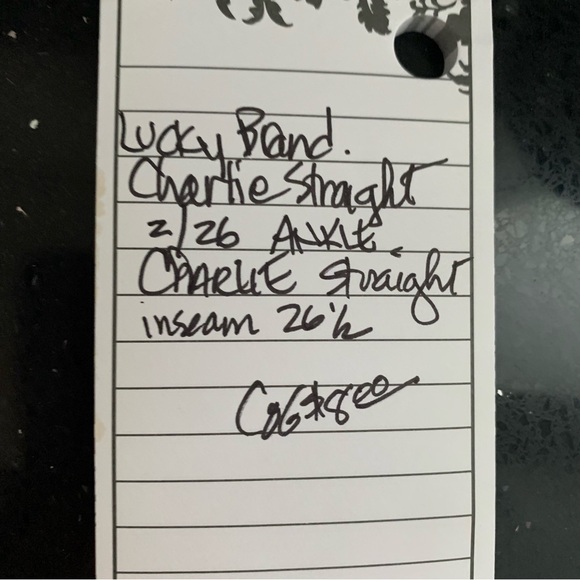 Lucky Band.
Charlie Straight
2/26 ANKLE
CHARLIE Straight
inseam 26½
COG $8.00